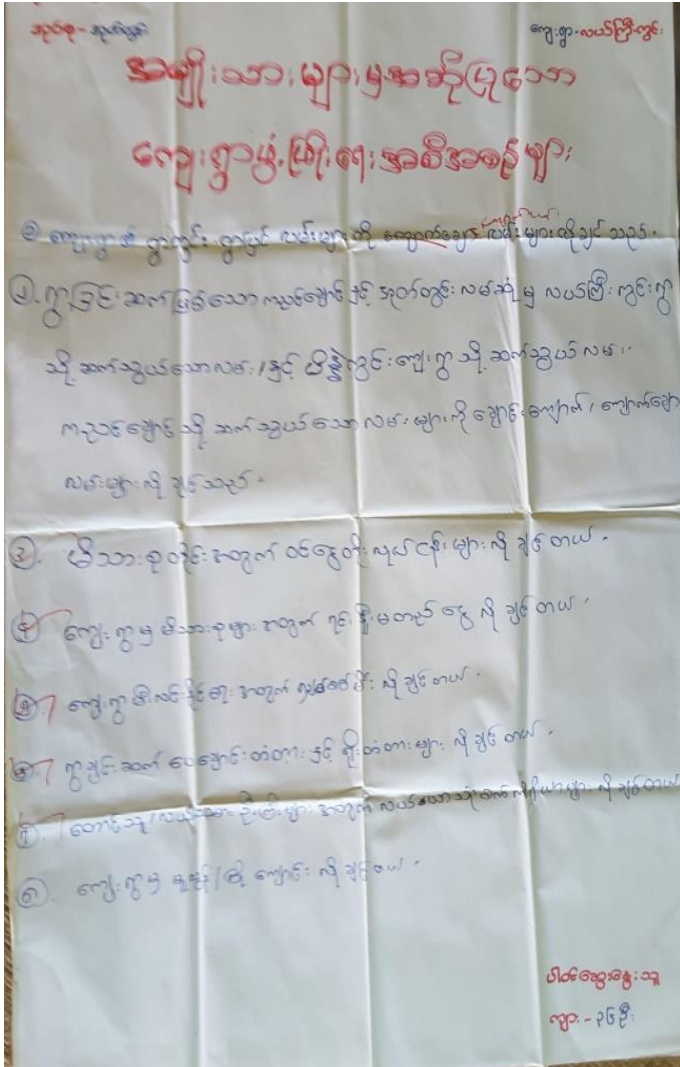 အုပ်စု - အုတ်တွင်း
ကျေးရွာ - လယ်ကြီးကွင်း
အမျိုးသားများမှအဆိုပြုသော
ကျေးရွာဖွံ့ဖြိုးရေးအစီအစဉ်များ
ရွာတွင်း ရွာပြင် လမ်းများကို ကျောက်ချော လမ်းများလိုချင်သည်။
၂. ရွာချင်းဆက်ဖြစ်သော ကညင်ချောင်းနှင့် အုတ်တွင်းလမ်းဆုံမှ လယ်ကြီးကွင်းရွာ
သို့ ဆက်သွယ်သောလမ်း၊ နှင့် ကွင်းကျေးရွာသို့ ဆက်သွယ်လမ်း၊
ကညင်ချောင်းသို့ ဆက်သွယ်သောလမ်းများကို ချောင်းကျောက်၊ ကျောက်ချော
လမ်းများလိုချင်သည်။
၃. မိသားစုတိုင်းအတွက် ဝင်ငွေတိုးလုပ်ငန်းများလိုချင်တယ်။
ကျေးရွာမှ မိသားစုများအတွက် ရင်းနှီးမတည်ငွေ လိုချင်တယ်။
ကျေးရွာမီးလင်းနိုင်ရေးအတွက် လျှပ်စစ်မီး လိုချင်တယ်။
ရွာချင်းဆက် ပေချောင်းတံတားနှင့် ရိုးတံတားများ လိုချင်တယ်။
တောင်သူ/လယ်သမား ဦးကြီးများအတွက် လယ်ယာသုံးစက်ကိရိယာများ လိုချင်တယ်
၈. ကျေးရွာမှ မူလွန်/ကြို ကျောင်း လိုချင်တယ်။
ပါဝင်ဆွေးနွေးသူ
ကျား - ၃၆ဦး